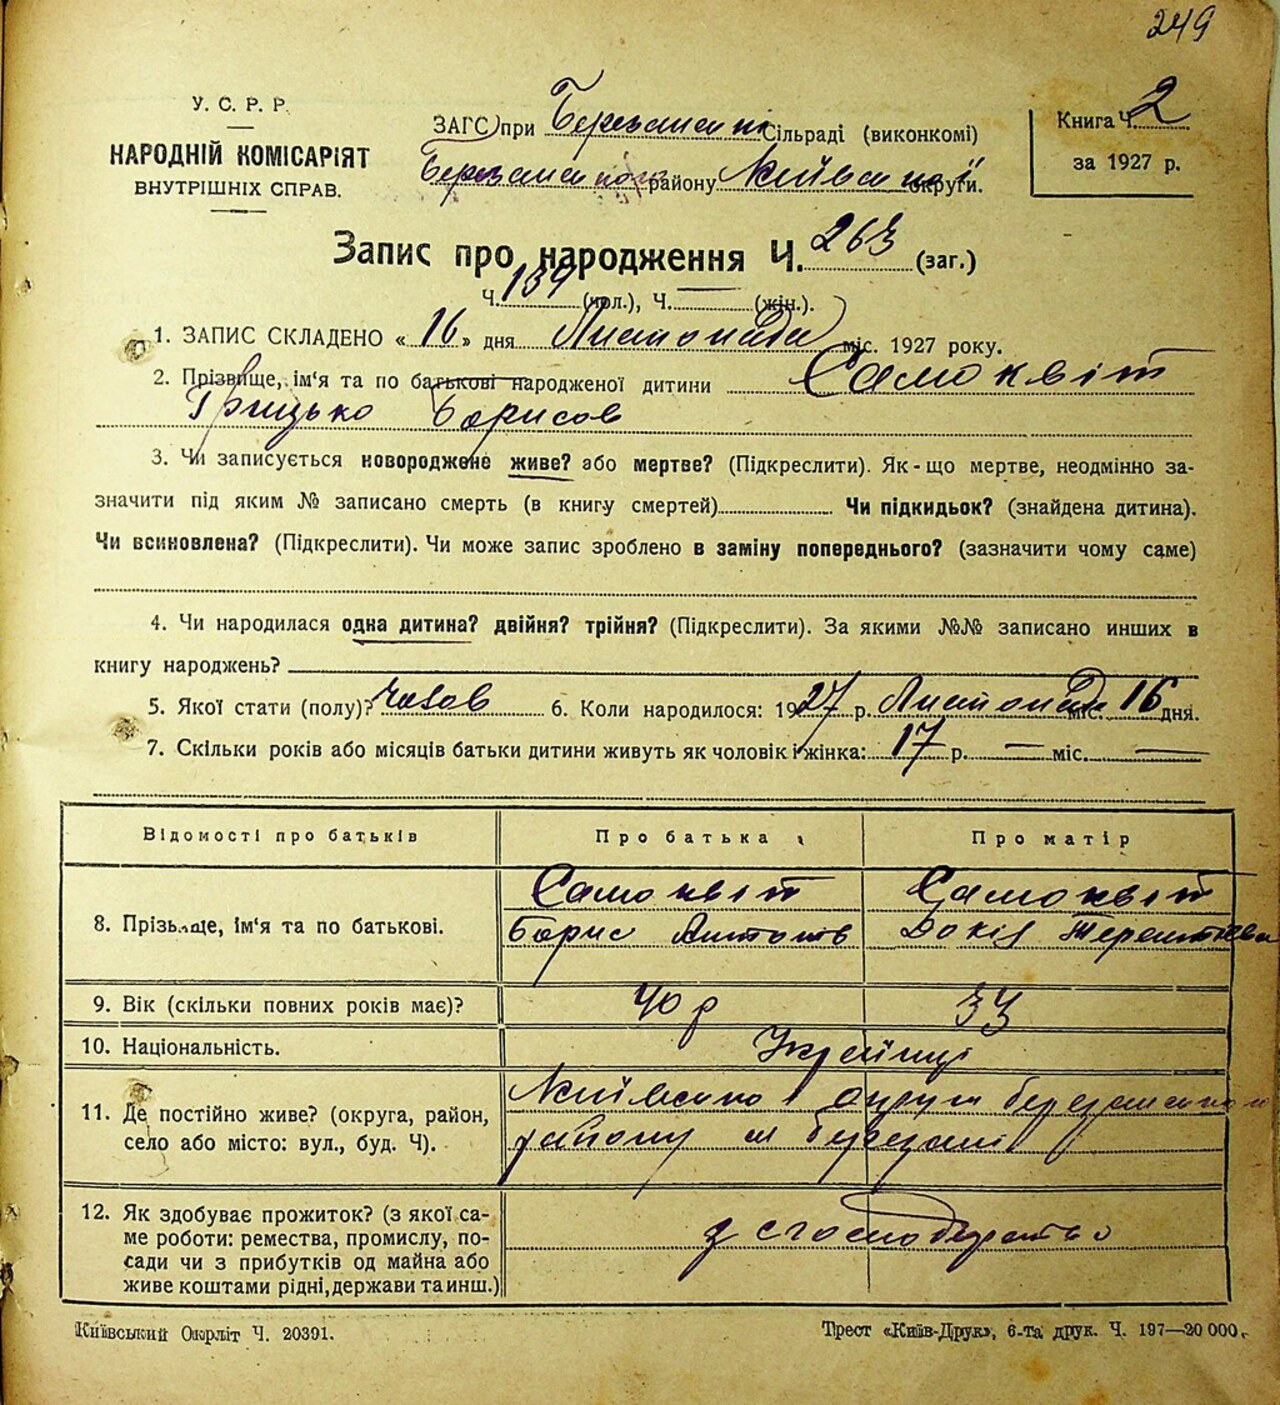 249
У. С. Р. Р.
НАРОДНІЙ КОМІСАРІЯТ
ВНУТРІШНІХ СПРАВ.
ЗАГС при Березанські Сільраді (виконкомі)
району округи.
Книга Ч. 2
за 1927 р.
Запис про народження Ч. 263 (заг.)
Ч. 139 (чол.), Ч. (жін.).
1. ЗАПИС СКЛАДЕНО « 16 » дня Листопада міс. 1927 року.
2. Прізвище, ім'я та по батькові народженої дитини Самоквіт
Грицько Борисов
3. Чи записується новороджене живе? або мертве? (Підкреслити). Як-що мертве, неодмінно за-
значити під яким № записано смерть (в книгу смертей) Чи підкидьок? (знайдена дитина).
Чи всиновлена? (Підкреслити). Чи може запис зроблено в заміну попереднього? (зазначити чому саме)
4. Чи народилася одна дитина? двійня? трійня? (Підкреслити). За якими №№ записано инших в
книгу народжень?
5. Якої стати (полу)? чолов 6. Коли народилося: 1927 р. Листопада міс. 16 дня.
7. Скільки років або місяців батьки дитини живуть як чоловік і жінка: 17 р. — міс. —
Відомості про батьків Про батька Про матір
8. Прізвище, ім'я та по батькові. Самоквіт Самоквіт
Борис Антонів Докія Терентієва
9. Вік (скільки повних років має)? 40 р 33
10. Національність. Украйнці
11. Де постійно живе? (округа, район,
село або місто: вул., буд. Ч).
району м Березані
12. Як здобуває прожиток? (з якої са-
ме роботи: ремества, промислу, по-
сади чи з прибутків од майна або
живе коштами рідні, держави та инш.)
Київський Окрліт Ч. 20391.
Трест «Київ-Друк», 6-та друк. Ч. 197—20 000.